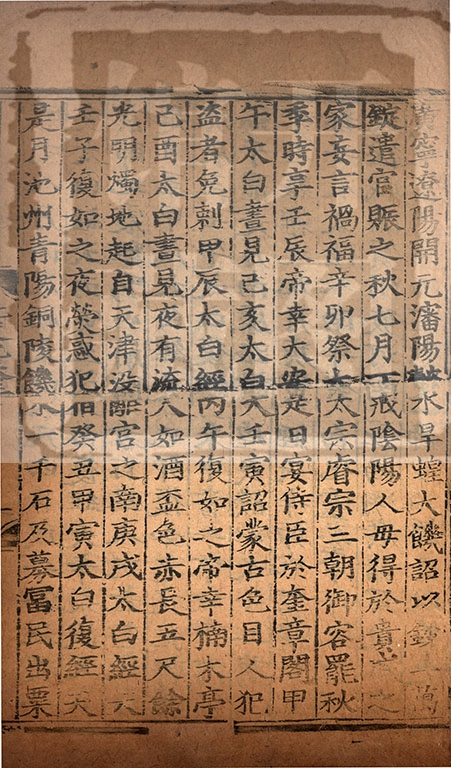 寧遼陽開元瀋陽水旱蝗大饑詔以鈔萬
錠遣官賑之秋七月丁戒陰陽人毋得於貴之
家妄言禍福辛卯祭太太宗睿宗三朝御容罷秋
季時享壬辰帝幸大安是日宴侍臣於奎章閣甲
午太白晝見己亥太白天壬寅詔蒙古色目人犯
盗者免刺甲辰太白經丙午復如之帝幸楠木亭
己酉太白晝見夜有流大如酒盃色赤長五尺餘
光明燭地起自天津没離宫之南庚戌太白經天
壬子復如之夜熒惑犯伯癸丑甲寅太白復經天
是月池州青陽銅陵饑米一千石及募富民出粟